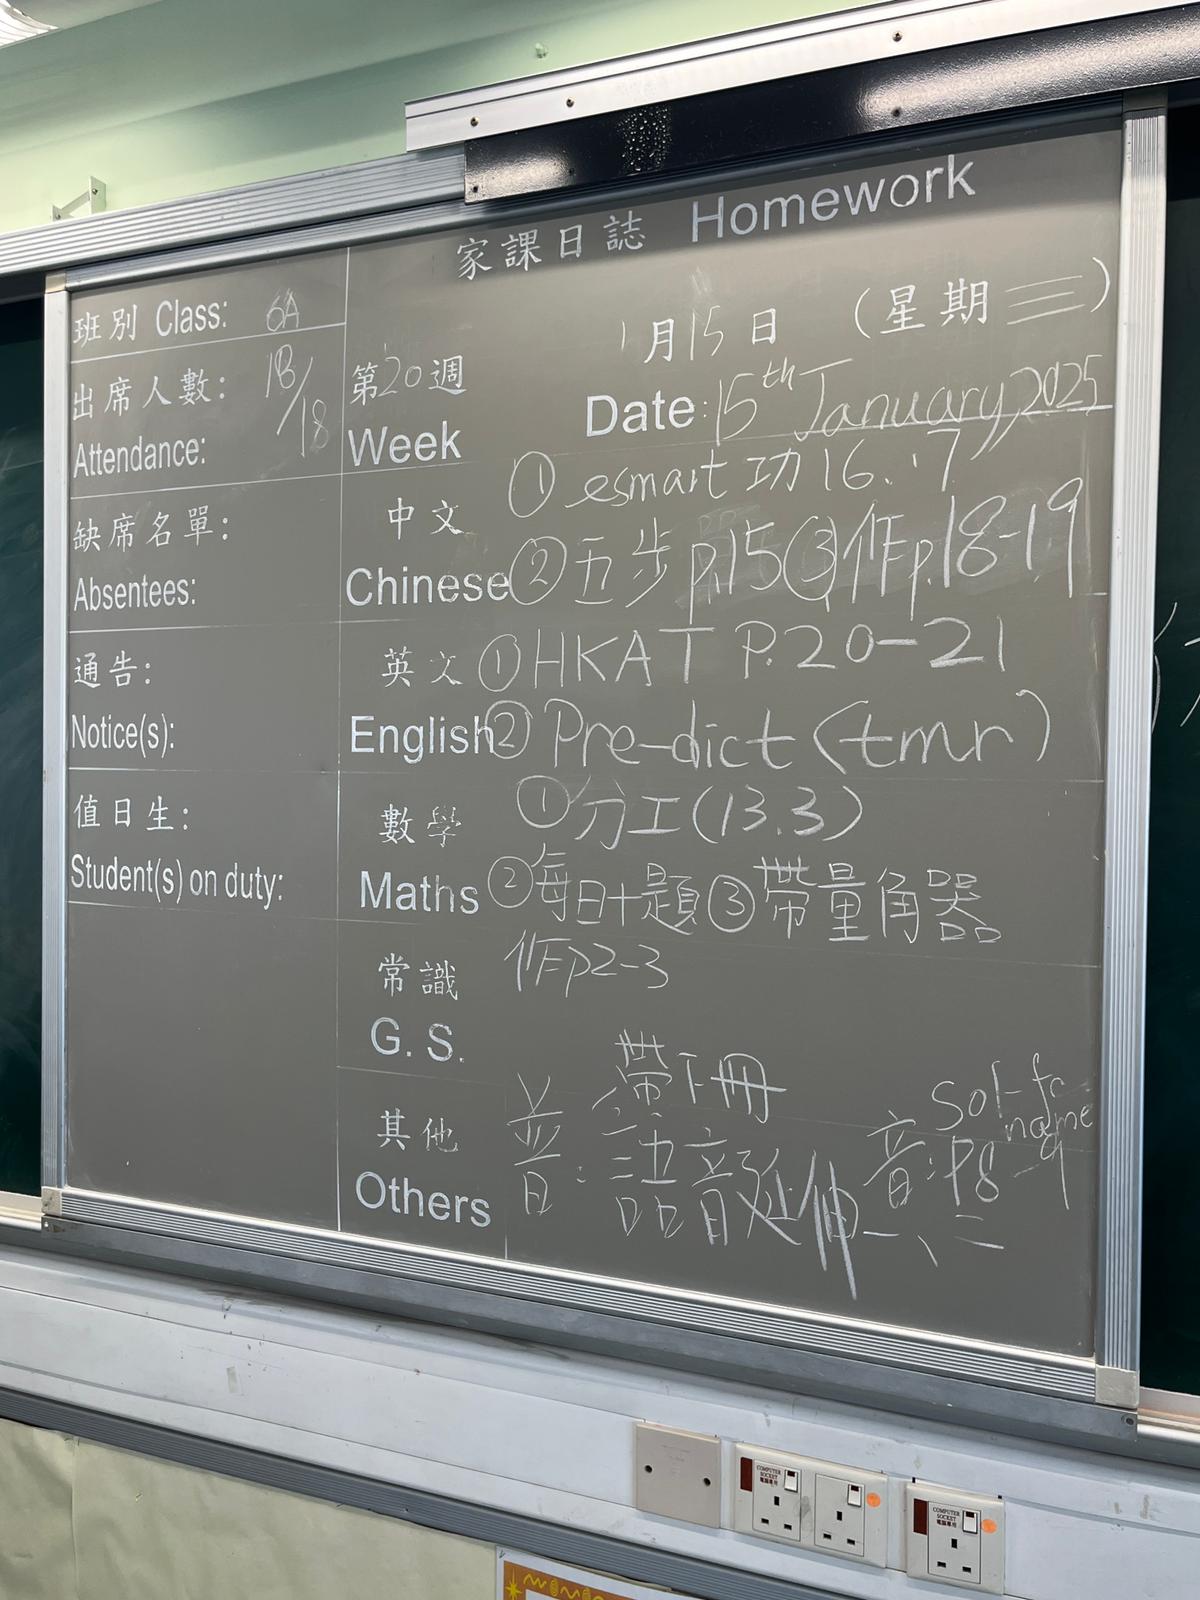 家課日誌 Homework
班別 Class: 6A
出席人數: 18/18
Attendance:
缺席名單:
Absentees:
通告:
Notice(s):
值日生:
Student(s) on duty:
1月15日 (星期三)
第20週
Week
Date: 15th January, 2025
中文
Chinese
① esmart 功16.17
② 五步 p.15 ③ 作p.18-19
英文
English
① HKAT P.20-21
② Pre-dict (tmr)
數學
Maths
① 分工(13.3)
② 每日十題 ③ 帶量角器
常識
G.S.
作p2-3
其他
Others
帶下冊
普: 語音延伸一、二
音: P8
Sol-fa
name
COMPUTER SOCKET
電腦專用
COMPUTER SOCKET
電腦專用